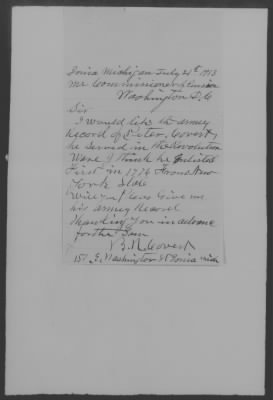 Ionia Michigan July 21st 1913
Mr Commissioner of Pension
Washington D.C
Sir
I would like the army
Record of Peter Covert
he served in the Revolution
Ware I think he Enlisted
First in 1776 From New
York State
Will you Please Give me
his army Record
Thanking You in advance
for the Same
B. N. Covert
151 E. Washington St Ionia Mich